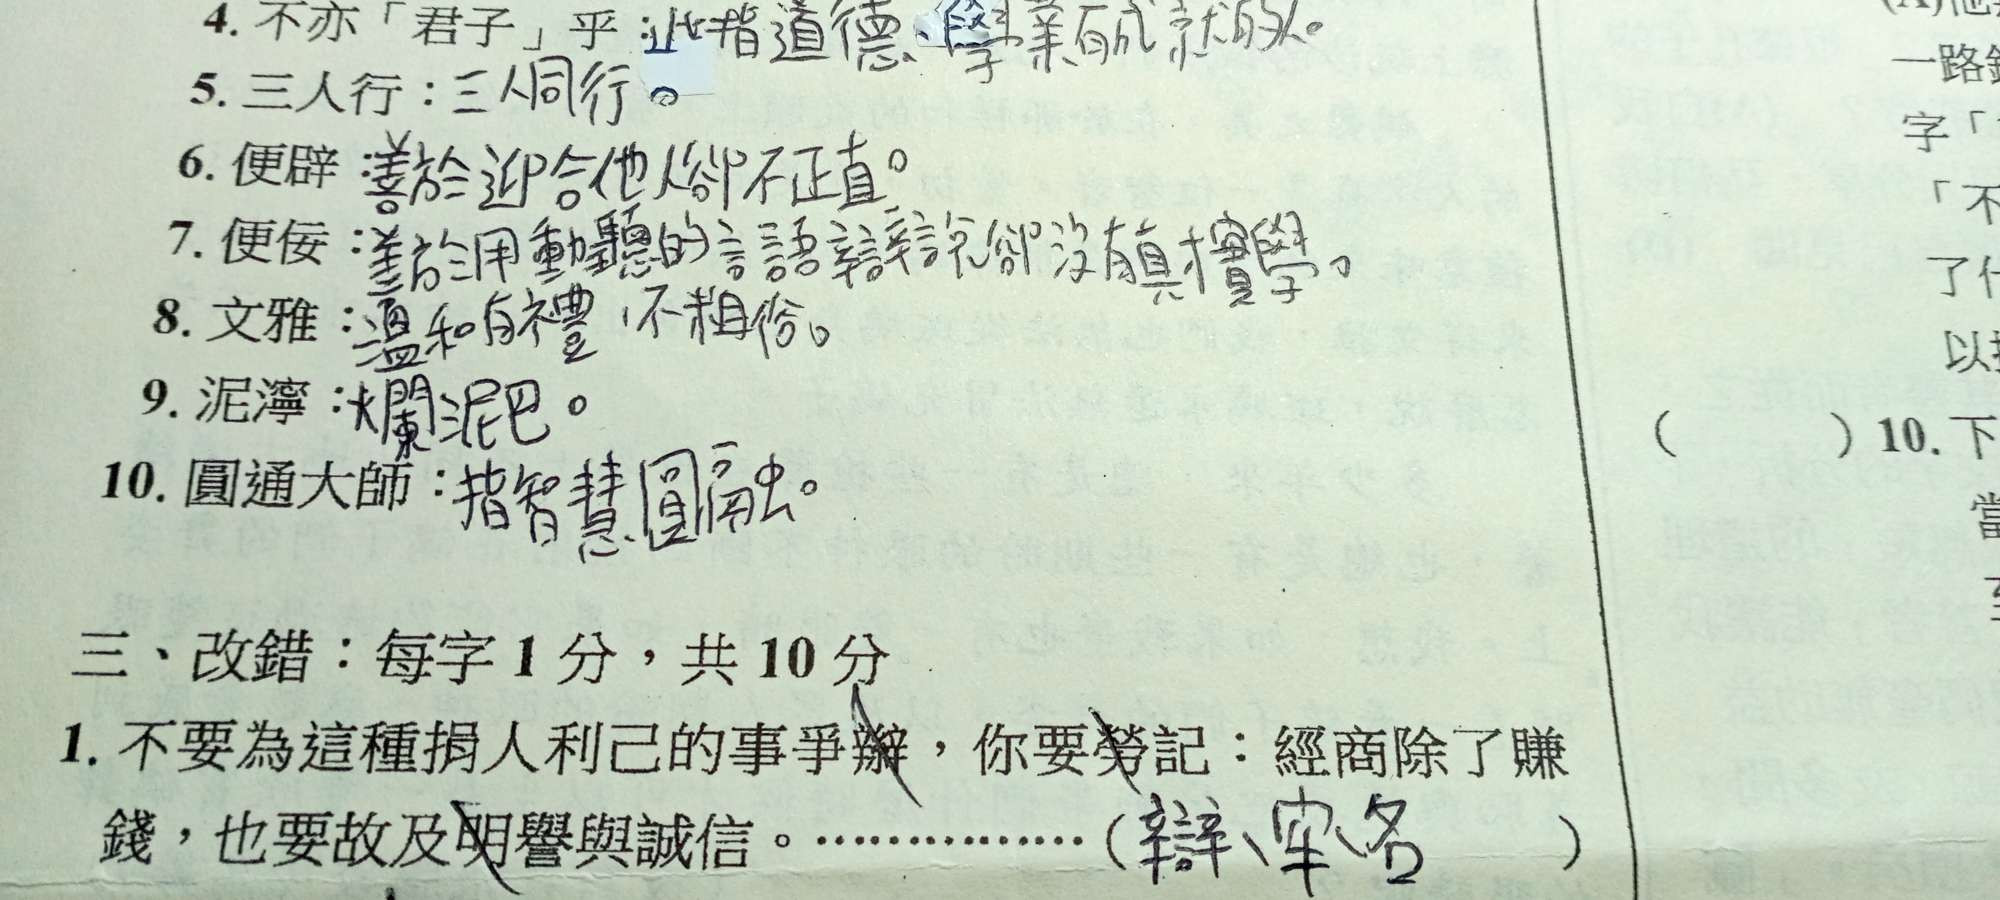 4. 不亦「君子」乎：此指道德、學業有成就的人。
5. 三人行：三人同行。
6. 便辟：善於迎合他人卻不正直。
7. 便佞：善於用動聽的言語辯說卻沒有真才實學。
8. 文雅：溫和有禮，不粗俗。
9. 泥濘：爛泥巴。
10. 圓通大師：指智慧圓融。
三、改錯：每字 1 分，共 10 分
1. 不要為這種捐人利己的事爭辦，你要勞記：經商除了賺
錢，也要故及明譽與誠信。……………（辯、牢、名）
一路
字「
「不
了什
以
（ ）10. 下
當